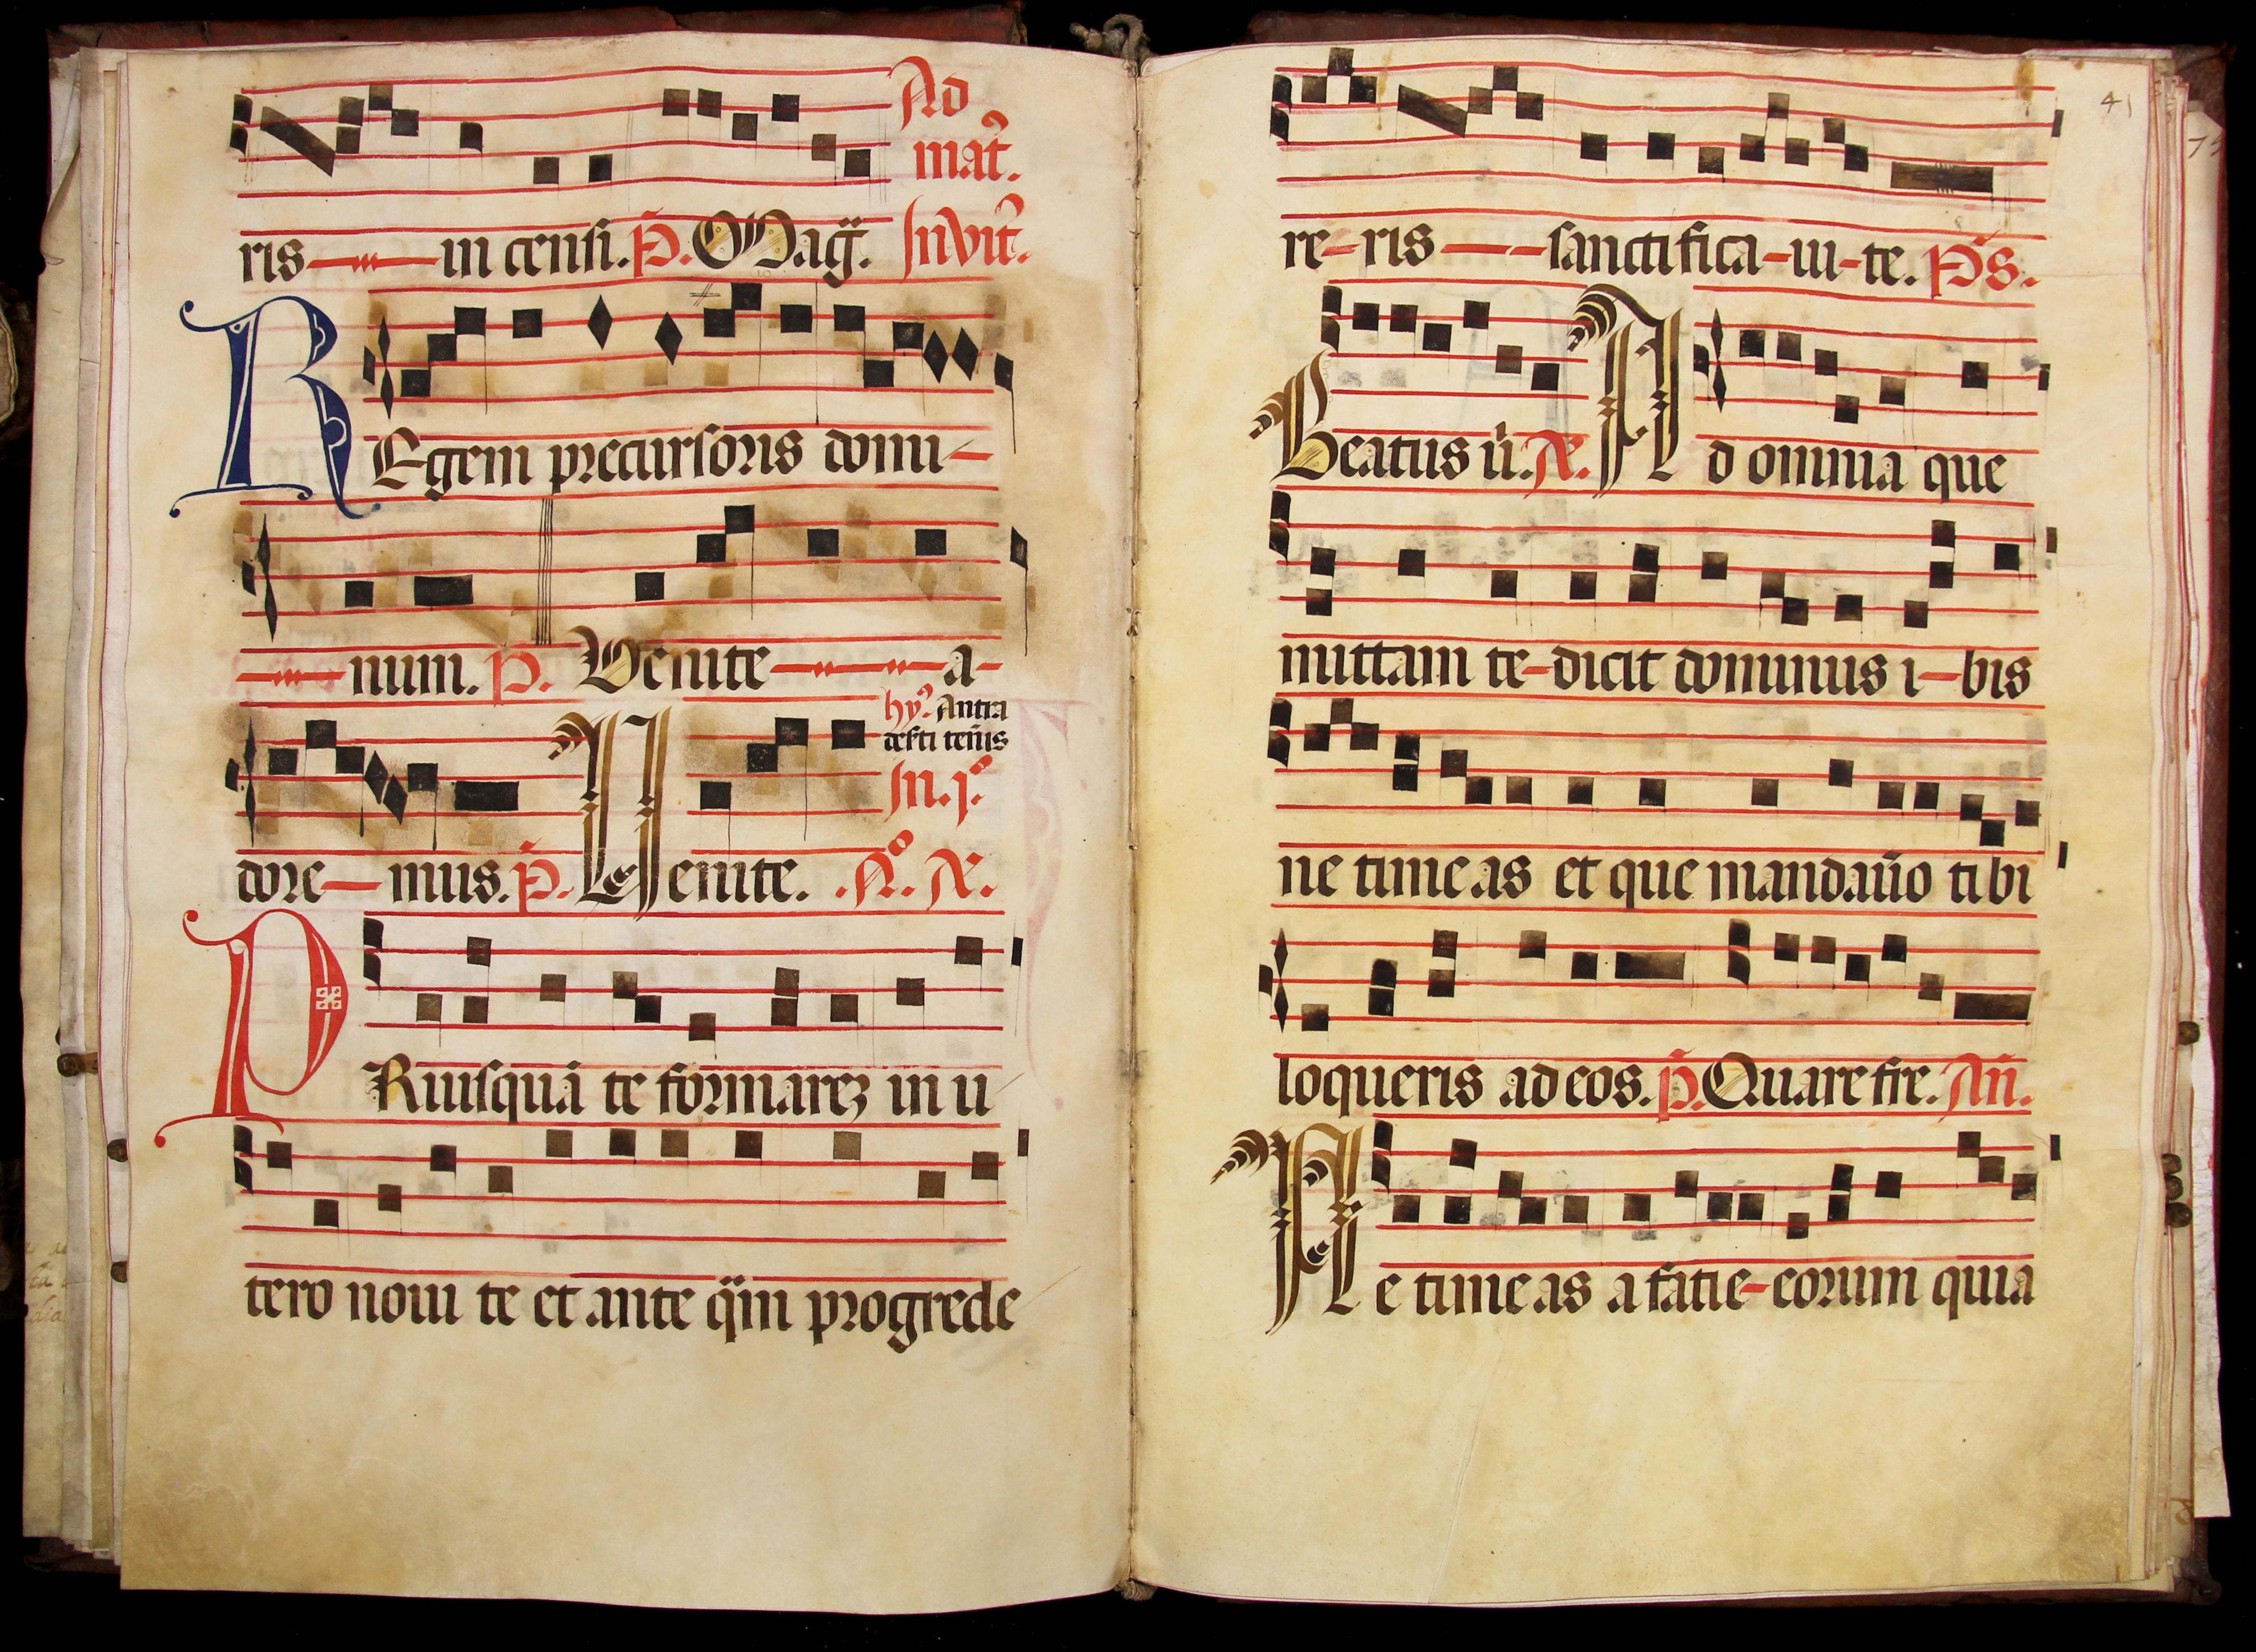 Ad
mat̃.
ris in censi. P̃. Mag̃. Invit̃.
REgem precursoris domi-
num. P. Venite a-
hỹ. Antra
deserti teñis
In. j.º
dore-mus. P̃. Venite. .A. N̄.
PRiusquã te formarez in u
tero noui te et ante q̃m progrede
41
re-ris sanctifica-ui-te. P̃s.
Beatus ũ. Ad omnia que
mittam te-dicit dominus i-bis
ne timeas et que mandaũo tibi
loqueris ad eos. P̃. Quare fre. Añ.
Ne timeas a fatie-eorum quia